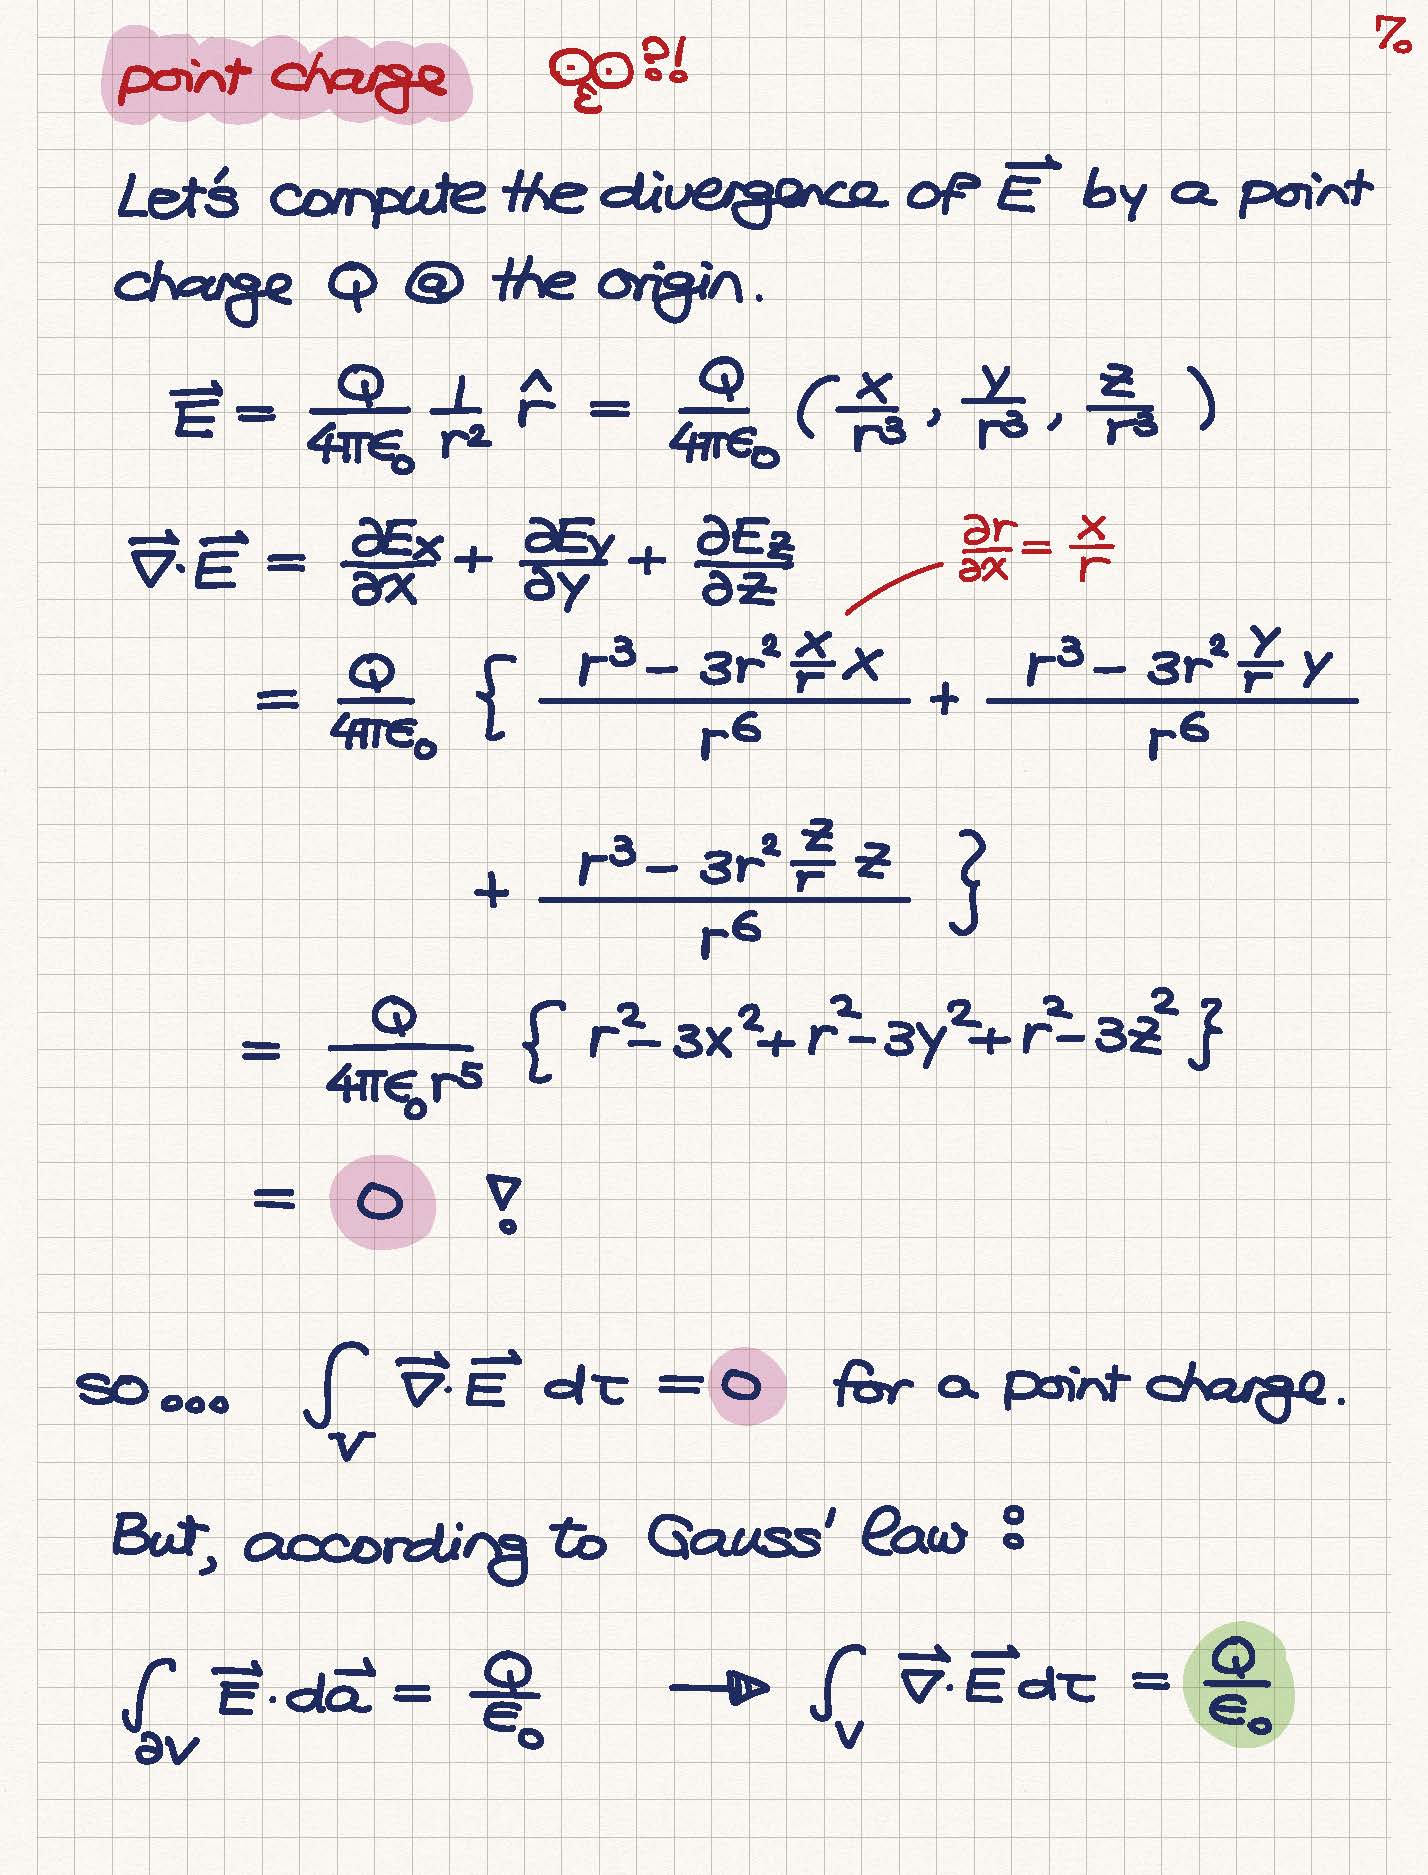 7.
point charge ?!
Let's compute the divergence of E⃗ by a point
charge Q @ the origin.
E⃗ = Q/(4πε₀) 1/r² r̂ = Q/(4πε₀) (x/r³, y/r³, z/r³)
∇⃗·E⃗ = ∂Ex/∂x + ∂Ey/∂y + ∂Ez/∂z
∂r/∂x = x/r
= Q/(4πε₀) { (r³ - 3r² x/r x)/r⁶ + (r³ - 3r² y/r y)/r⁶
+ (r³ - 3r² z/r z)/r⁶ }
= Q/(4πε₀r⁵) { r² - 3x² + r² - 3y² + r² - 3z² }
= 0 !
so... ∫_V ∇⃗·E⃗ dτ = 0 for a point charge.
But, according to Gauss' law :
∫_∂V E⃗·da⃗ = Q/ε₀ → ∫_V ∇⃗·E⃗ dτ = Q/ε₀